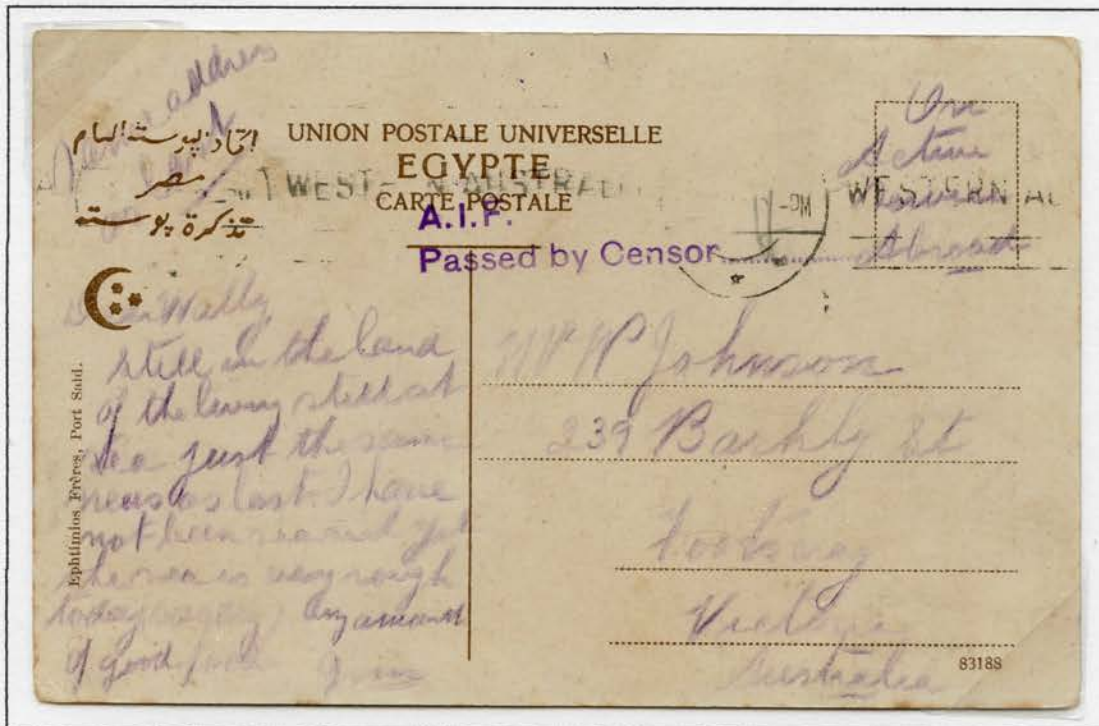 Same address
اتحاد پوسته العام
مصر
تذكرة پوسته
UNION POSTALE UNIVERSELLE
EGYPTE
CARTE POSTALE
WESTE N AUSTRALI
-PM
WESTERN AU
On
Active
Service
Abroad
A.I.F.
Passed by Censor
Ephtimios Frères, Port Said.
Dear Wally
still in the land
of the living still at
sea just the same
news as last. I have
not been seasick yet
the sea is very rough
today any amount
of good luck Jim
Mr W Johnson
239 Barkly St
Footscray
Victoria
Australia
83188